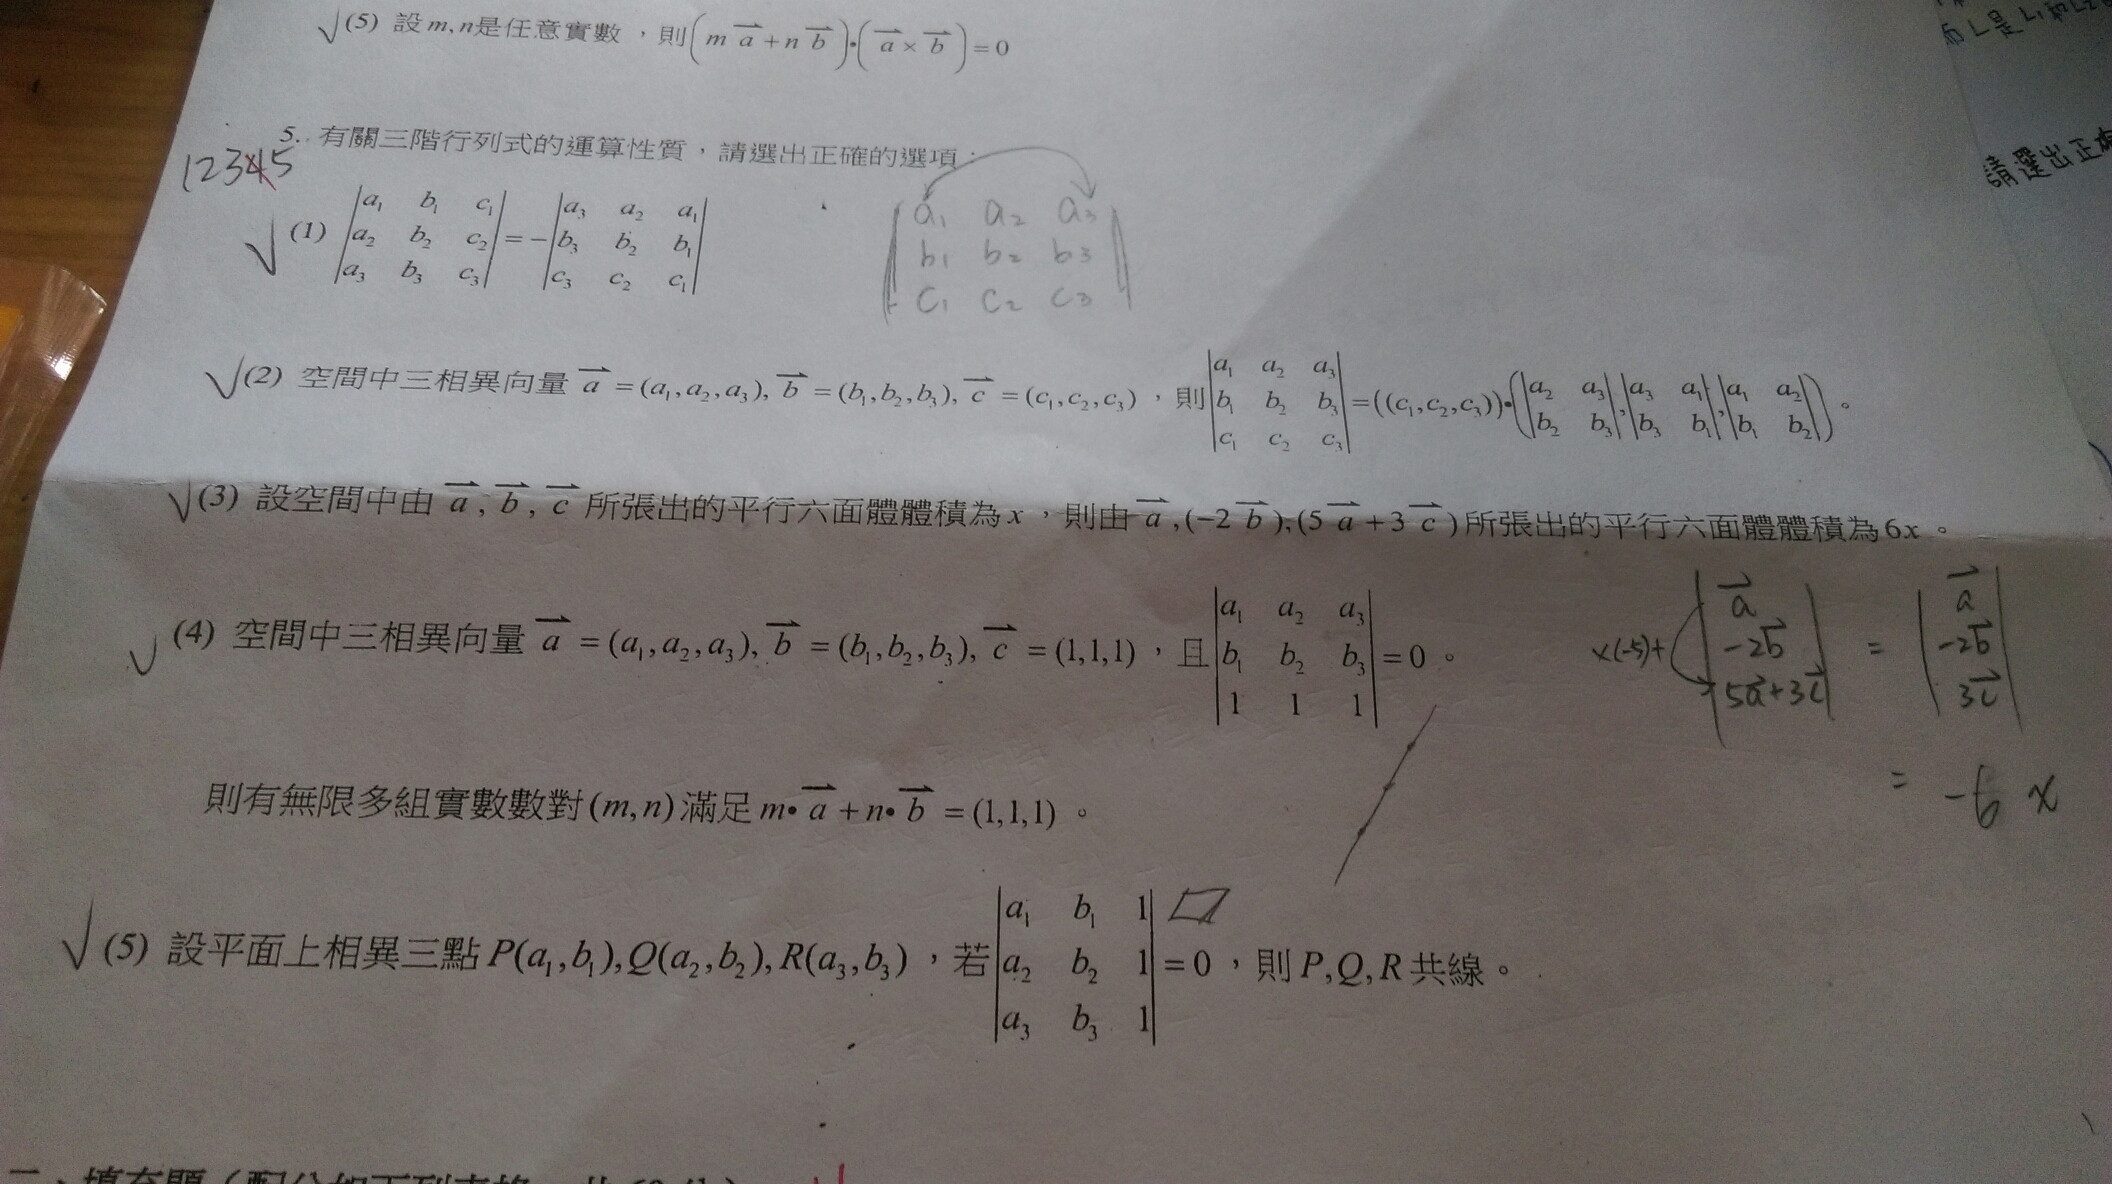 √(5) 設 m, n是任意實數，則(m a⃗ + n b⃗)•(a⃗ × b⃗) = 0
而 L 是 L₁ 和 L₂
5. 有關三階行列式的運算性質，請選出正確的選項：
12345
請選出正確
√(1) |a₁ b₁ c₁| = −|a₃ a₂ a₁|
|a₂ b₂ c₂| |b₃ b₂ b₁|
|a₃ b₃ c₃| |c₃ c₂ c₁|
|a₁ a₂ a₃|
|b₁ b₂ b₃|
|c₁ c₂ c₃|
√(2) 空間中三相異向量 a⃗ = (a₁,a₂,a₃), b⃗ = (b₁,b₂,b₃), c⃗ = (c₁,c₂,c₃)，則|a₁ a₂ a₃; b₁ b₂ b₃; c₁ c₂ c₃| = ((c₁,c₂,c₃))•(|a₂ a₃; b₂ b₃|,|a₃ a₁; b₃ b₁|,|a₁ a₂; b₁ b₂|)。
√(3) 設空間中由 a⃗, b⃗, c⃗ 所張出的平行六面體體積為 x，則由 a⃗,(−2 b⃗),(5 a⃗ + 3 c⃗)所張出的平行六面體體積為 6x。
√(4) 空間中三相異向量 a⃗ = (a₁,a₂,a₃), b⃗ = (b₁,b₂,b₃), c⃗ = (1,1,1)，且|a₁ a₂ a₃; b₁ b₂ b₃; 1 1 1| = 0。
×(-5)+ |a⃗; −2b⃗; 5a⃗+3c⃗| = |a⃗; −2b⃗; 3c⃗|
= −6 x
則有無限多組實數數對(m,n)滿足 m• a⃗ + n• b⃗ = (1,1,1)。
√(5) 設平面上相異三點 P(a₁,b₁),Q(a₂,b₂),R(a₃,b₃)，若|a₁ b₁ 1; a₂ b₂ 1; a₃ b₃ 1| = 0，則 P,Q,R 共線。
二、填充題